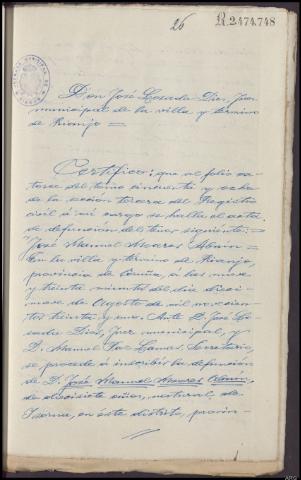 26
R.2.474.748
Don José Losada Dios, Juez
municipal de la villa y término
de Rianjo =
Certifico: que al folio ca-
torce del tomo cincuenta y ocho
de la sección tercera del Registro
civil a mi cargo se halla el acta
de defunción del tenor siguiente: =
"José Manuel Alvarez =
En la villa y término de Rianjo,
provincia de Coruña, a las nueve
y treinta minutos del día dieci-
nueve de Agosto de mil novecien-
tos treinta y uno. Ante D. José Lo-
sada Dios, Juez municipal, y
D. Manuel Lamas, Secretario,
se procede a inscribir la defunción
de D. José Manuel Alvarez
de diecisiete años, natural de
Isorna, en éste distrito, provin-